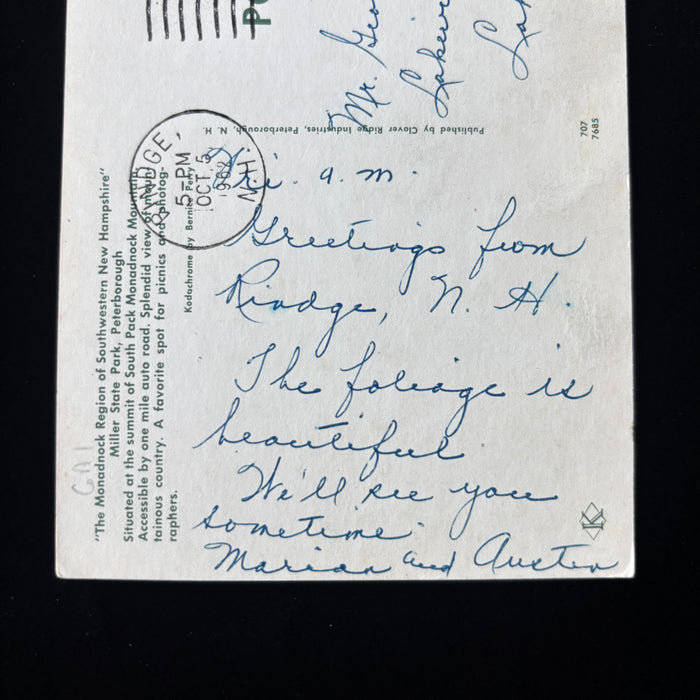 Fri. a.m.
Greetings from
Rindge, N. H.
The foliage is
beautiful.
We'll see you
sometime.
Marian and Austin
"The Monadnock Region of Southwestern New Hampshire"
Miller State Park, Peterborough
Situated at the summit of South Pack Monadnock Mountain.
Accessible by one mile auto road. Splendid view of moun-
tainous country. A favorite spot for picnics and photog-
raphers.
Kodachrome by Bernice Perry
RINDGE, N.H.
5-PM
OCT 5
Published by Clover Ridge Industries, Peterborough, N. H.
707
7685
K
GA1
Mr.